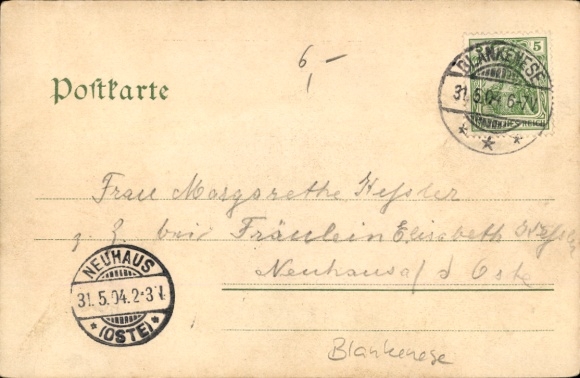 6,-
Postkarte
5
BLANKENESE
31.5.04 6-7V.
REICH
Frau Margarethe Kessler
z. Z. bei Fräulein Elisabeth Kessler
Neuhaus / d Oste
NEUHAUS
31.5.04.2-3N.
* (OSTE) *
Blankenese